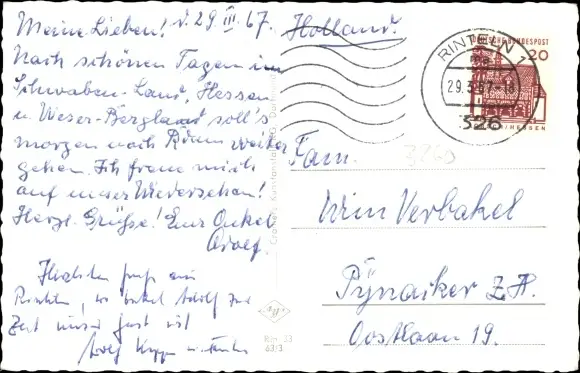 Meine Lieben! d. 29. III. 67.
Nach schönen Tagen im
Schwaben-Land, Hessen
u. Weser-Bergland soll's
morgen nach Rdam weiter
gehen. Ich freue mich
auf unser Wiedersehen!
Herzl. Grüße! Euer Onkel
Adolf.
Herzlichen Gruß aus
Rinteln, wo Onkel Adolf zur
Zeit unser Gast ist
Adolf
Holland.
DEUTSCHE BUNDESPOST
20
HESSEN
RINTELN 1
29.3.67-18
326
3260
Fam.
Wim Verbakel
Pijnacker Z.H.
Oostlaan 19.
Cramers Kunstanstalt KG, Dortmund
Rin 33
63/3